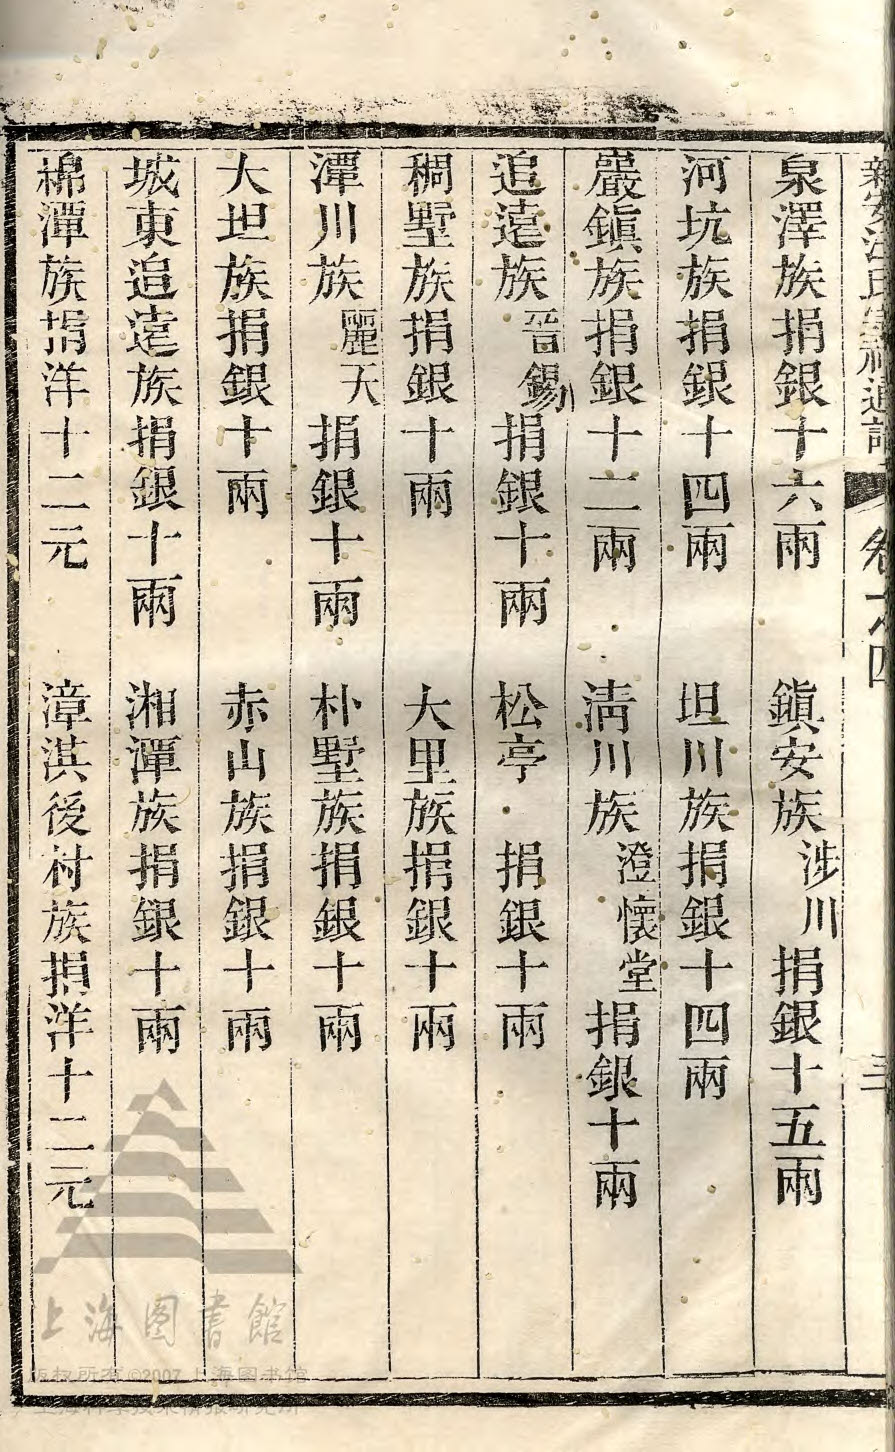 新安汪氏宗祠通譜 卷之四 三
泉澤族捐銀十六兩 鎮安族涉川捐銀十五兩
河坑族捐銀十四兩 坦川族捐銀十四兩
巖鎮族捐銀十二兩 清川族澄懷堂捐銀十兩
追遠族晉錫捐銀十兩 松亭 捐銀十兩
稠墅族捐銀十兩 大里族捐銀十兩
潭川族麗天捐銀十兩 朴墅族捐銀十兩
大坦族捐銀十兩 赤山族捐銀十兩
城東追遠族捐銀十兩 湘潭族捐銀十兩
綿潭族捐洋十二元 漳淇後村族捐洋十二元
上海图書館
版权所有©2007上海图书馆